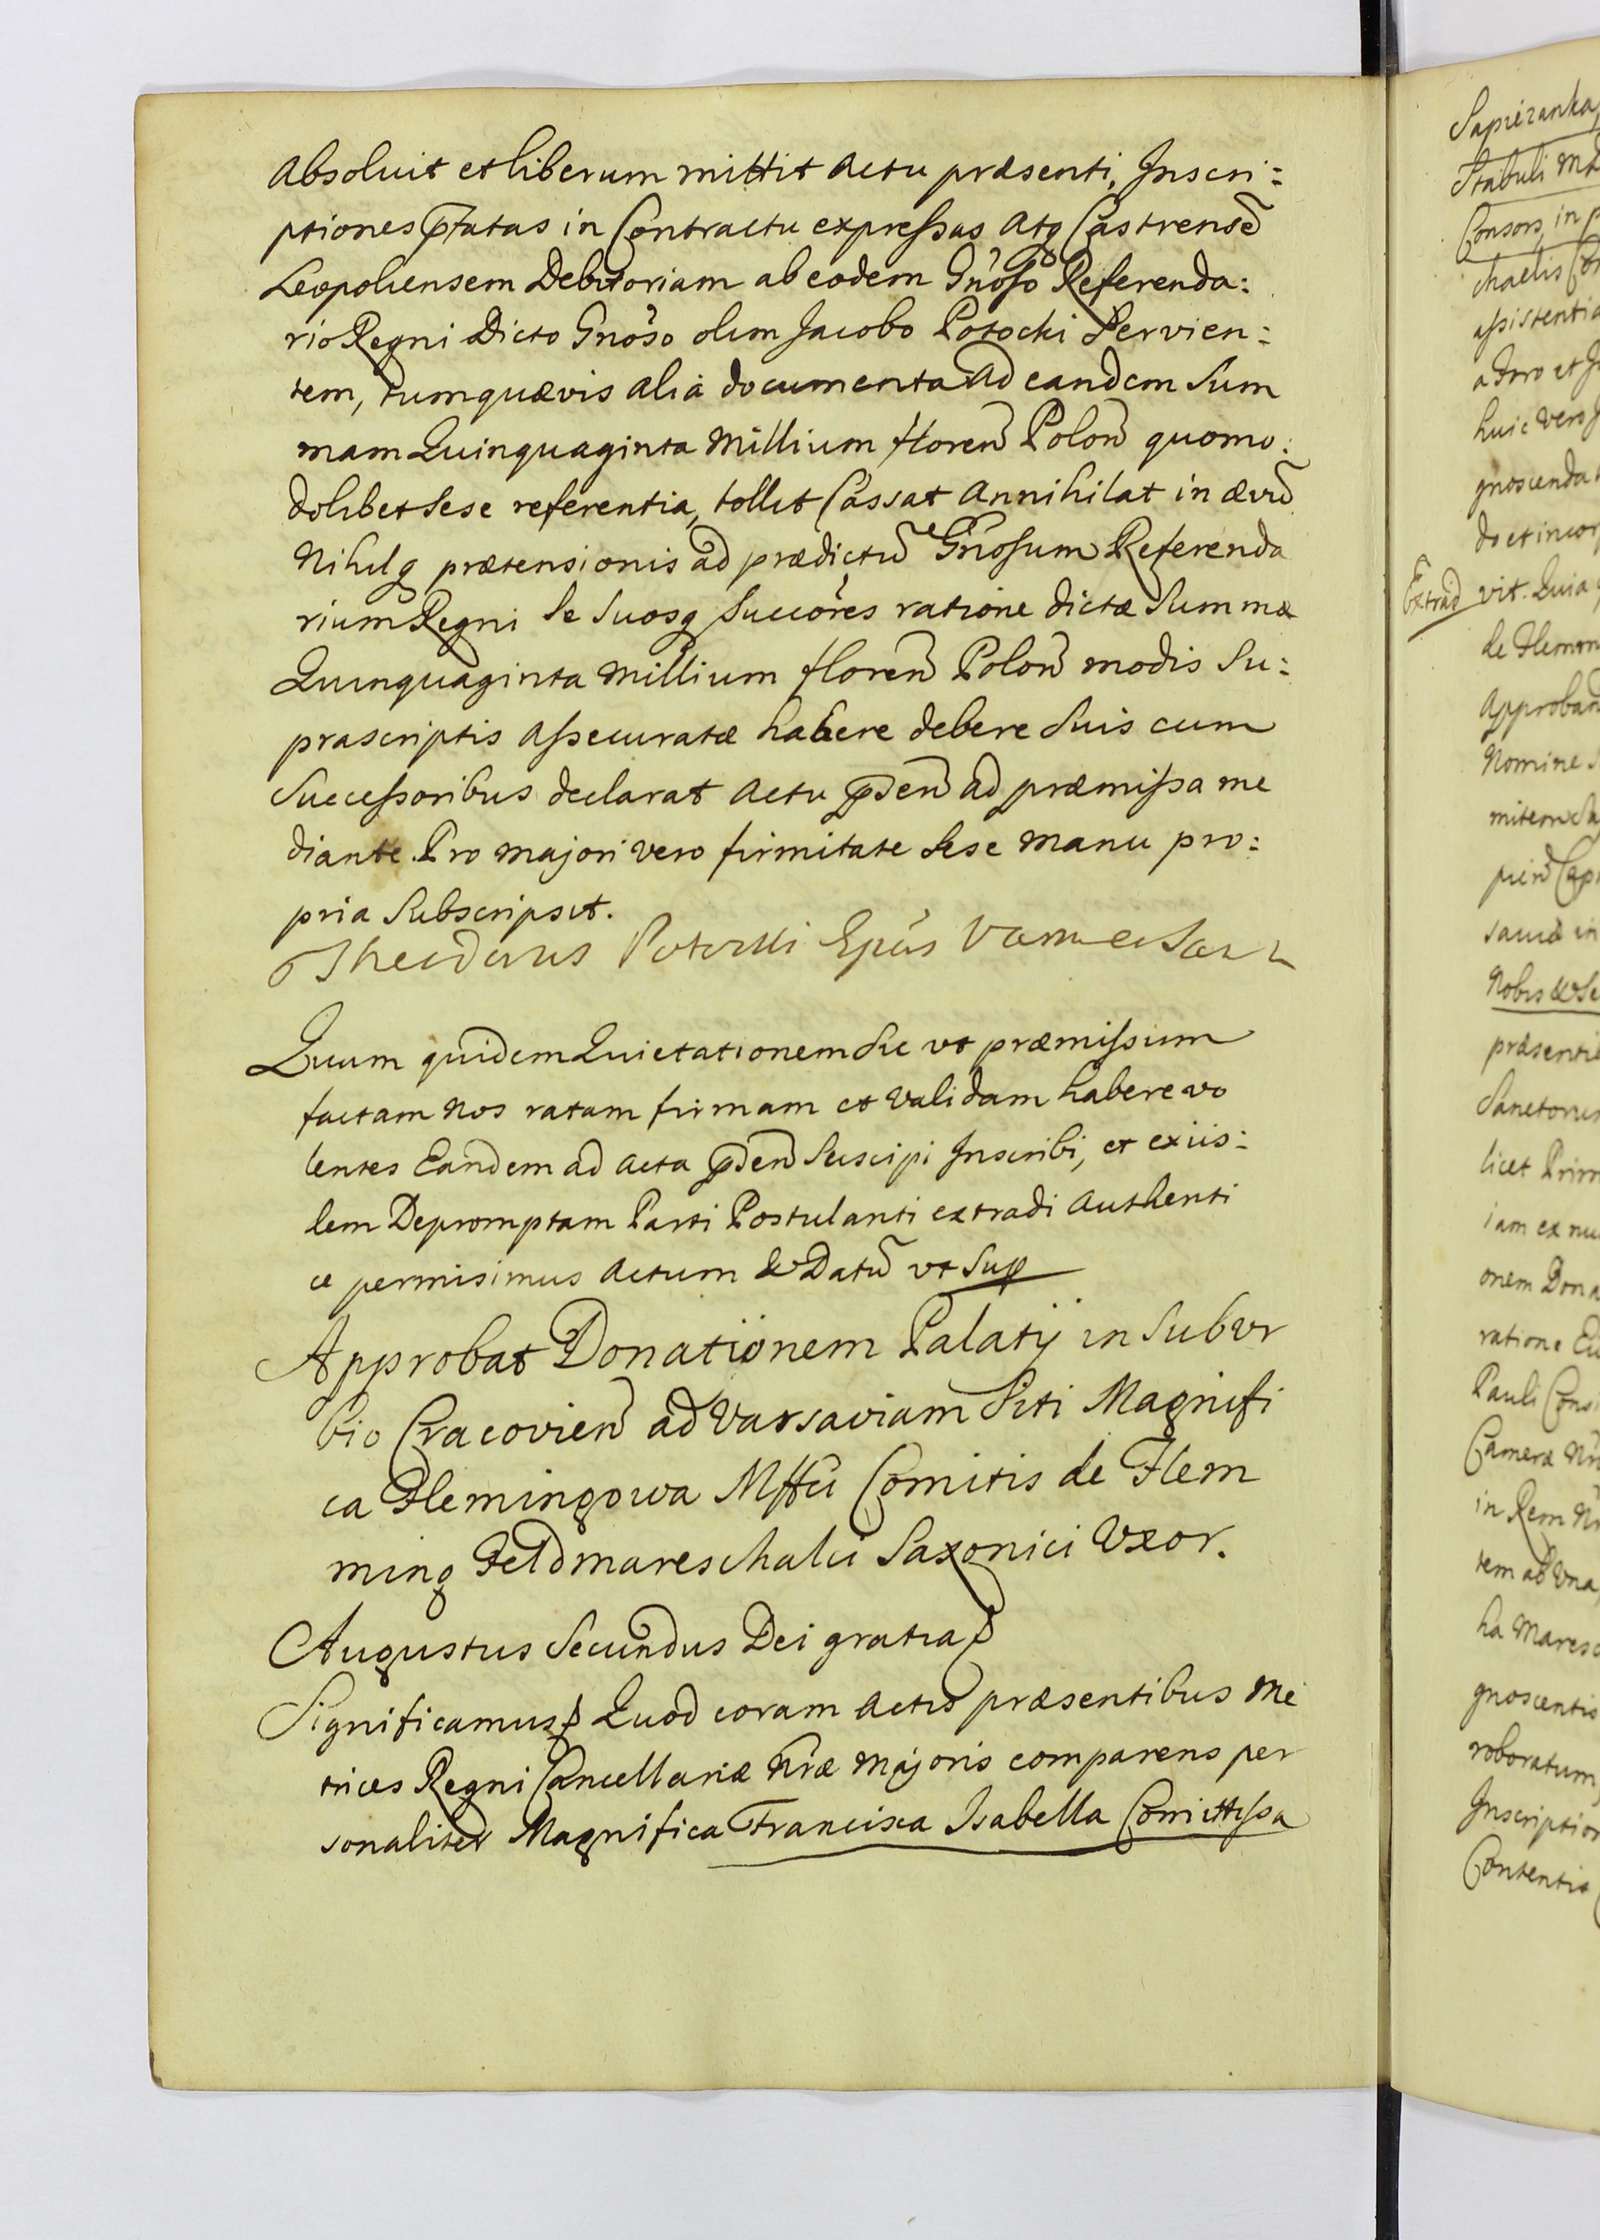 Absoluit et liberum mittit Actu præsenti, Inscri:
ptiones p̃fatas in Contractu expressas Atq Castrensẽ
Leopoliensem Debitoriam ab eodem Gñoso Referenda:
rio Regni Dicto Gñoso olim Jacobo Potocki Servien:
tem, tum quævis alia documenta Ad eandem Sum
mam Quinquaginta Millium floreñ Poloñ quomo:
dolibet sese referentia, tollit Cassat Annihilat in ævũ
Nihilq prætensionis ad prædictũ Gñosum Referenda
rium Regni Se Suosq Succõres ratione dictæ Summæ
Quinquaginta Millium floreñ Poloñ modis Su:
prascriptis Assecuratæ habere debere Suis cum
Successoribus declarat Actu p̃deñ ad præmissa me
diante. Pro majori vero firmitate Sese Manu pro:
pria Subscripsit.
Theodorus Potocki Epũs Varmiae
Quam quidem Quietationem Sic vt præmissum
factam Nos ratam firmam et Validam habere vo
lentes Eandem ad Acta p̃deñ Suscipi Inscribi, et exiis:
dem Depromptam Parti Postulanti extradi Authenti
ce permisimus Actum & Datũ vt Sup
Approbat Donationem Palatij in Subur
bio Cracovieñ ad Varsaviam Siti Magnifi
ca Flemingowa Mffci Comitis de Flem
ming Feldmareschalci Saxonici Vxor.
Augustus Secundus Dei gratia
Significamus Quod coram Actis præsentibus Me
trices Regni Cancellariæ Nr̃æ Majoris comparens per
sonaliter Magnifica Francisca Isabella Comittissa
Sapiezanka,
Stabuli
Consors, in
chaelis
assistentia
huic vers
gnoscenda
Extrad vit. Quia
de Flemm
Approband
Nomine
Nobis
Sanctorum
licet Prim
iam ex nu
onem Dona
ratione
Pauli
Cameræ
in Rem
tem ab Vna
ha Maresc
gnoscentis
roboratum
Inscription
Contentis